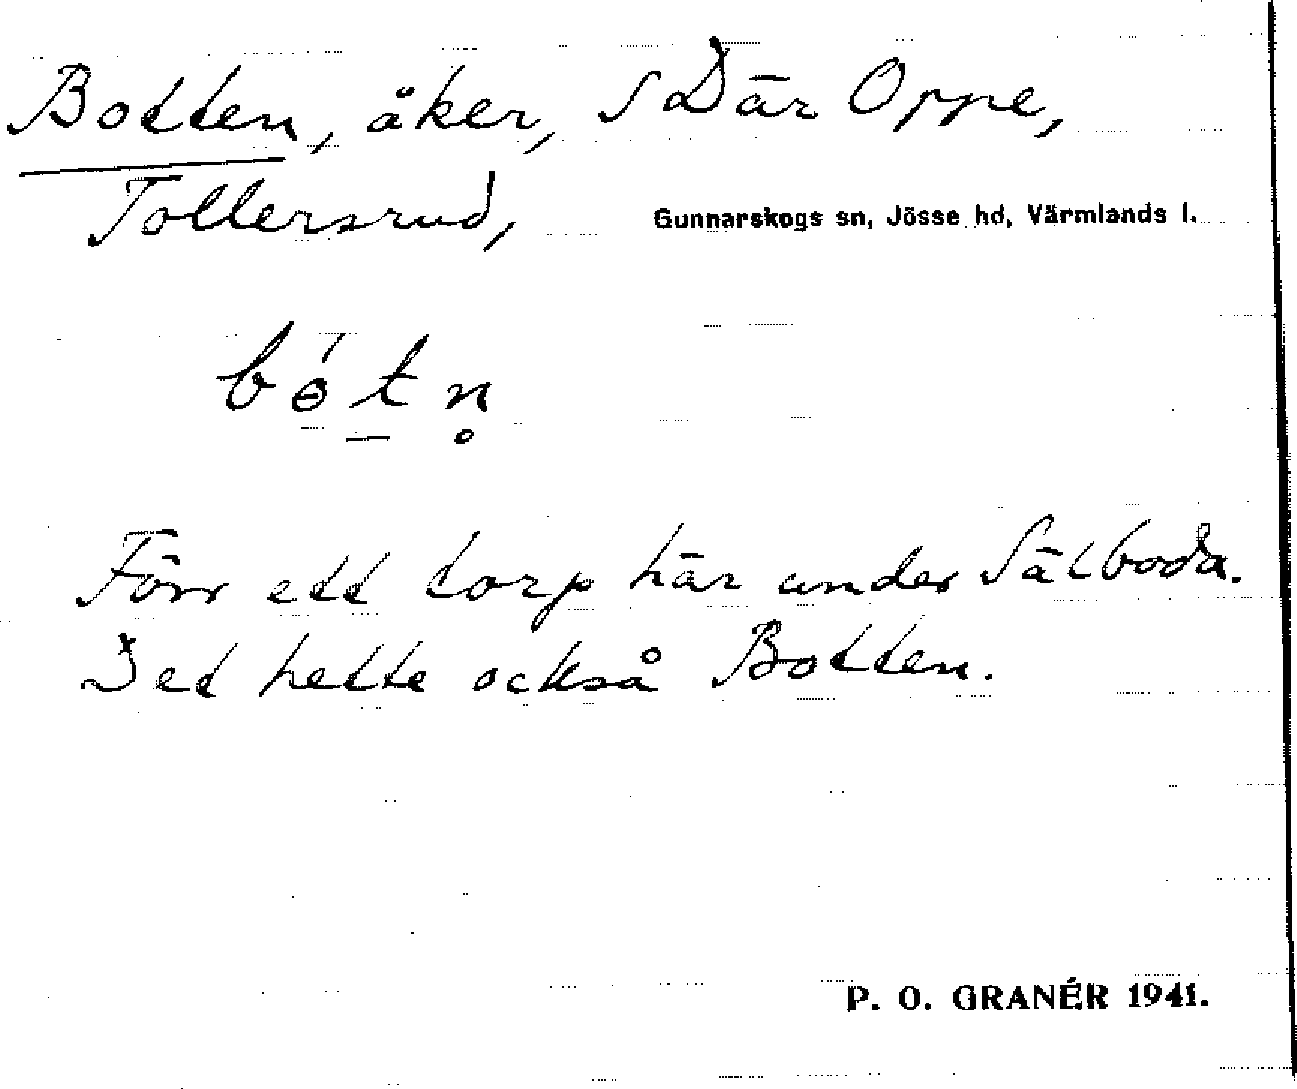 Botten, åker, S Där Oppe,
Tollersrud,
Gunnarskogs sn, Jösse hd, Värmlands l.
bɵ́t̠n̥
Förr ett torp här under Sälboda.
Det hette också Botten.
P. O. GRANÉR 1941.